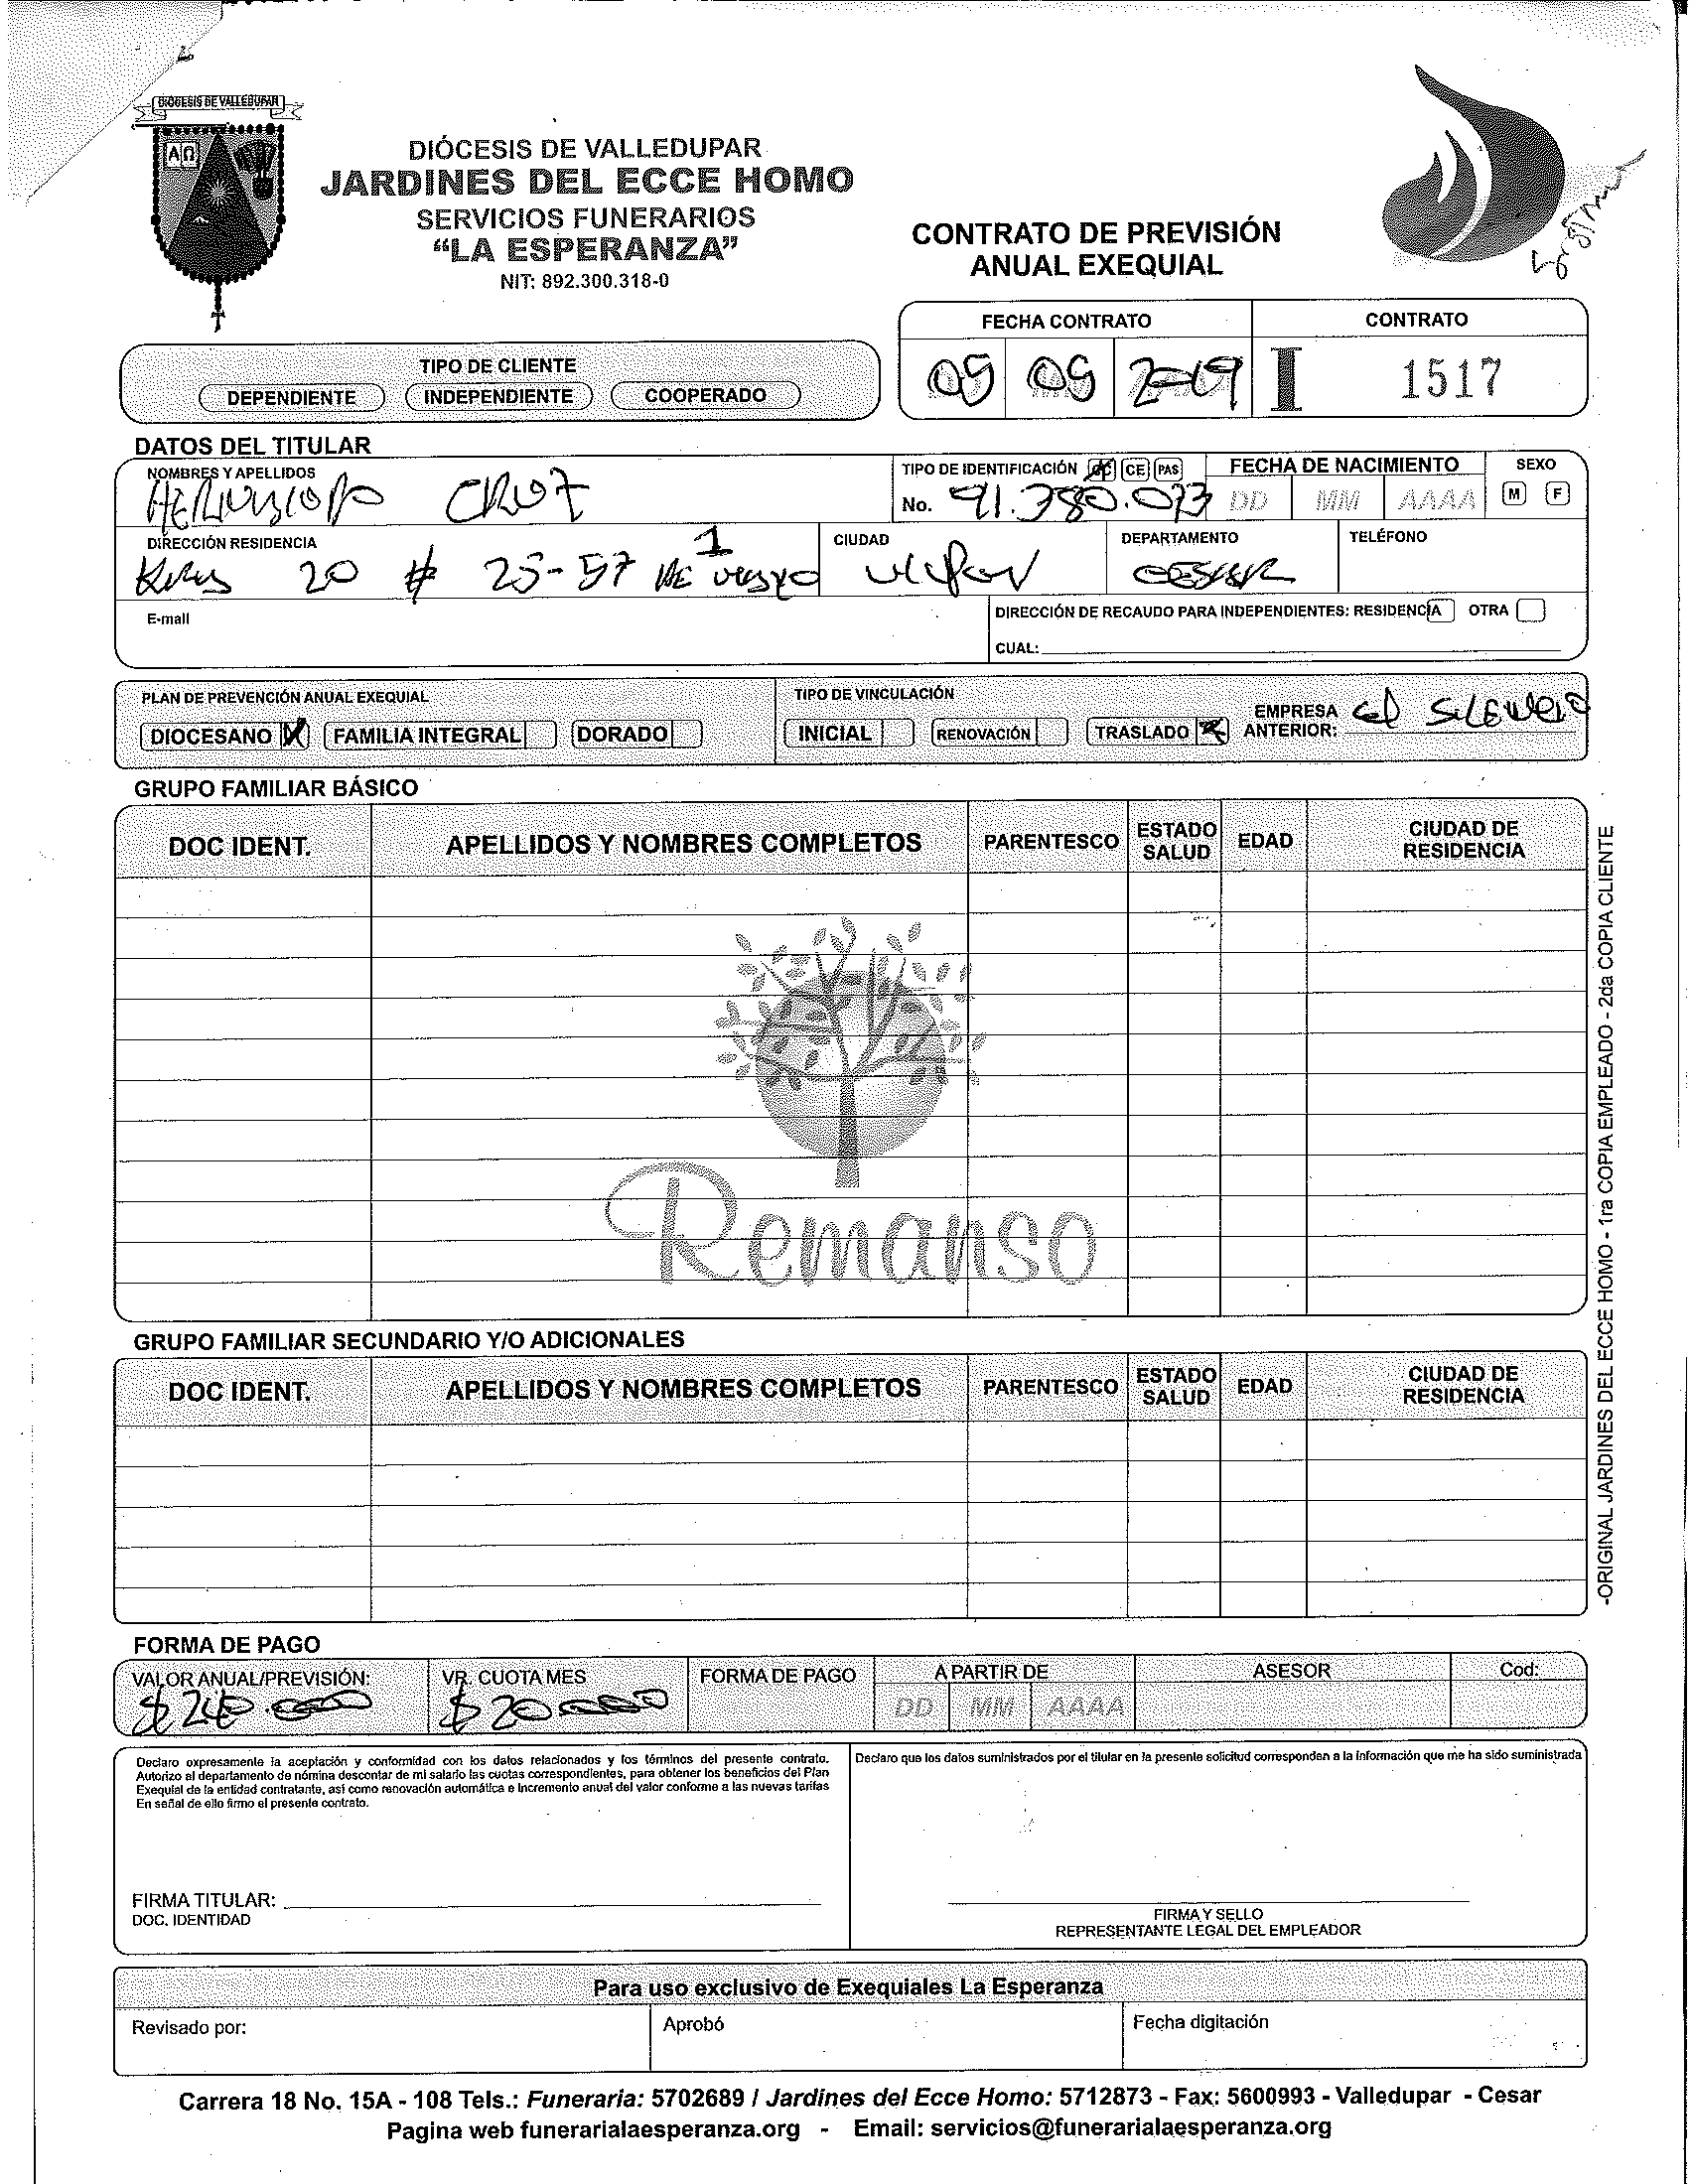 DIOCESIS DE VALLEDUPAR
A Ω
DIÓCESIS DE VALLEDUPAR
JARDINES DEL ECCE HOMO
SERVICIOS FUNERARIOS
“LA ESPERANZA”
NIT: 892.300.318-0
CONTRATO DE PREVISIÓN
ANUAL EXEQUIAL
FECHA CONTRATO
CONTRATO
09 09 2019
I 1517
TIPO DE CLIENTE
DEPENDIENTE INDEPENDIENTE COOPERADO
DATOS DEL TITULAR
NOMBRES Y APELLIDOS
CRUZ
TIPO DE IDENTIFICACIÓN CE PAS
No. 91.380.073
FECHA DE NACIMIENTO
DD MM AAAA
SEXO
M F
DIRECCIÓN RESIDENCIA
20 # 25-57 1 DE
CIUDAD
DEPARTAMENTO
CESAR
TELÉFONO
E-mail
DIRECCIÓN DE RECAUDO PARA INDEPENDIENTES: RESIDENCIA OTRA
CUAL:
PLAN DE PREVENCIÓN ANUAL EXEQUIAL
DIOCESANO X FAMILIA INTEGRAL DORADO
TIPO DE VINCULACIÓN
INICIAL RENOVACIÓN TRASLADO X
EMPRESA ANTERIOR: el SILENCIO
GRUPO FAMILIAR BÁSICO
DOC IDENT. APELLIDOS Y NOMBRES COMPLETOS PARENTESCO ESTADO SALUD EDAD CIUDAD DE RESIDENCIA
Remanso
GRUPO FAMILIAR SECUNDARIO Y/O ADICIONALES
DOC IDENT. APELLIDOS Y NOMBRES COMPLETOS PARENTESCO ESTADO SALUD EDAD CIUDAD DE RESIDENCIA
-ORIGINAL JARDINES DEL ECCE HOMO - 1ra COPIA EMPLEADO - 2da COPIA CLIENTE
FORMA DE PAGO
VALOR ANUAL/PREVISIÓN: VR. CUOTA MES FORMA DE PAGO A PARTIR DE ASESOR Cod:
$240.000 $20.000 DD MM AAAA
Declaro expresamente la aceptación y conformidad con los datos relacionados y los términos del presente contrato.
Autorizo al departamento de nómina descontar de mi salario las cuotas correspondientes, para obtener los beneficios del Plan
Exequial de la entidad contratante, así como renovación automática e incremento anual del valor conforme a las nuevas tarifas
En señal de ello firmo el presente contrato.
Declaro que los datos suministrados por el titular en la presente solicitud corresponden a la información que me ha sido suministrada
FIRMA TITULAR:
DOC. IDENTIDAD
FIRMA Y SELLO
REPRESENTANTE LEGAL DEL EMPLEADOR
Para uso exclusivo de Exequiales La Esperanza
Revisado por: Aprobó Fecha digitación
Carrera 18 No. 15A - 108 Tels.: Funeraria: 5702689 / Jardines del Ecce Homo: 5712873 - Fax: 5600993 - Valledupar - Cesar
Pagina web funerarialaesperanza.org - Email: servicios@funerarialaesperanza.org